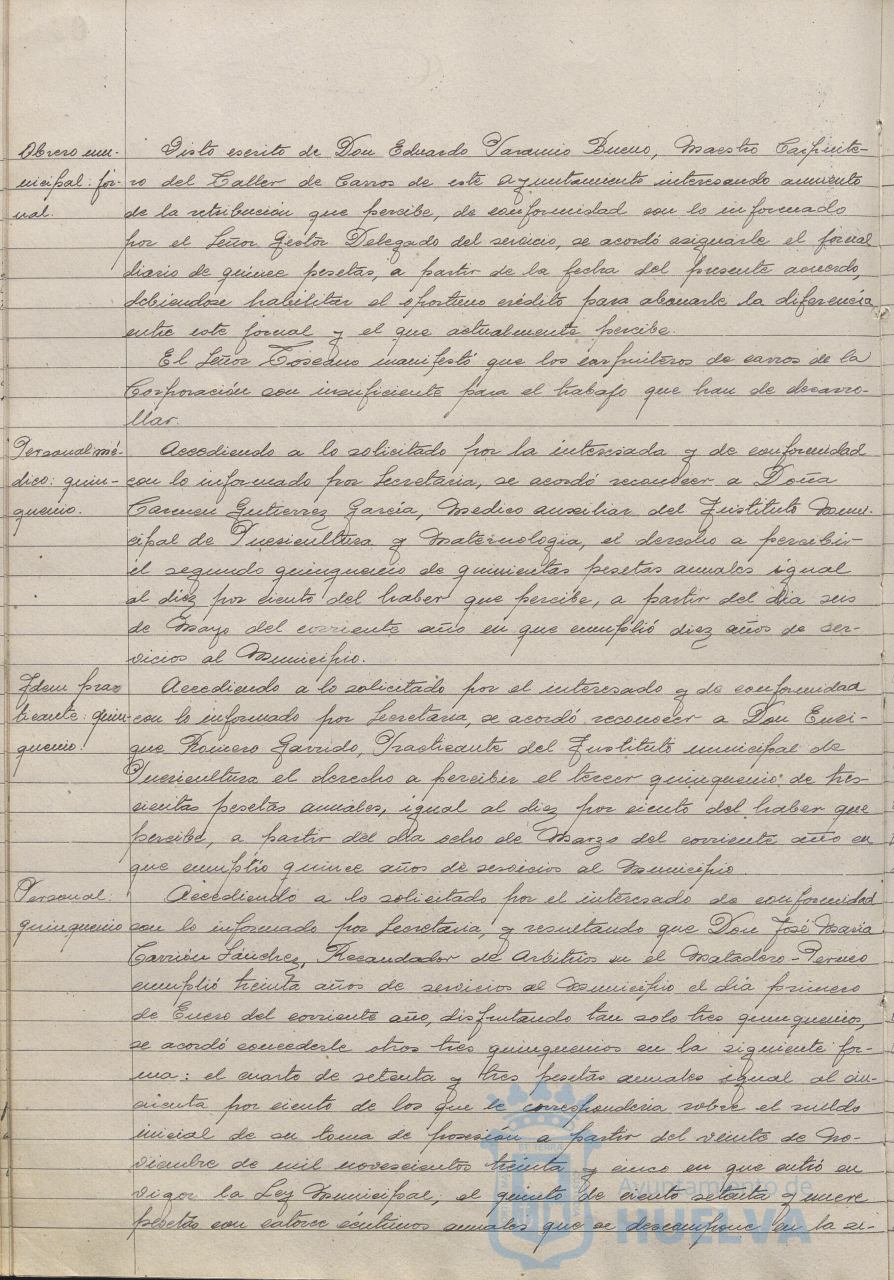 Obrero mu-
nicipal: jor-
nal.
Visto escrito de Don Eduardo Taramio Bueno, Maestro Carpinte-
ro del Taller de Carros de este Ayuntamiento interesando aumento
de la retribución que percibe, de conformidad con lo informado
por el Señor Gestor Delegado del servicio, se acordó asignarle el jornal
diario de quince pesetas, a partir de la fecha del presente acuerdo,
debiendose habilitar el oportuno crédito para abonarle la diferencia
entre este jornal y el que actualmente percibe.
El Señor Toscano manifestó que los carpinteros de carros de la
Corporación son insuficiente para el trabajo que han de desarro-
llar.
Personal mé-
dico: quin-
quenio.
Accediendo a lo solicitado por la interesada y de conformidad
con lo informado por Secretaria, se acordó reconocer a Doña
Carmen Gutierrez García, Medico auxiliar del Instituto Muni-
cipal de Puericultura y Maternologia, el derecho a percibir
el segundo quinquenio de quinientas pesetas anuales igual
al diez por ciento del haber que percibe, a partir del dia seis
de Mayo del corriente año en que cumplió diez años de ser-
vicios al Municipio.
Idem prac
ticante: quin-
quenio.
Accediendo a lo solicitado por el interesado y de conformidad
con lo informado por Secretaria, se acordó reconocer a Don Enri-
que Romero Garrido, Practicante del Instituto municipal de
Puericultura el derecho a percibir el tercer quinquenio de tres-
cientas pesetas anuales, igual al diez por ciento del haber que
percibe, a partir del dia ocho de Marzo del corriente año en
que cumplio quince años de servicios al Municipio.
Personal:
quinquenio
Accediendo a lo solicitado por el interesado de conformidad
con lo informado por Secretaria, y resultando que Don José Maria
Carrión Sánchez, Recaudador de Arbitrios en el Matadero-Perneo
cumplió treinta años de servicios al Municipio el dia primero
de Enero del corriente año, disfrutando tan solo tres quinquenios,
se acordó concederle otros tres quinquenios en la siguiente for-
ma: el cuarto de setenta y tres pesetas anuales igual al cin-
cuenta por ciento de los que le corresponderia sobre el sueldo
inicial de su toma de posesión a partir del veinte de No-
viembre de mil novescientos treinta y cinco en que entró en
vigor la Ley Municipal, el quinto de ciento setenta y nueve
pesetas con catorce céntimos anuales que se descompone en la si-
Ayuntamiento de
HUELVA